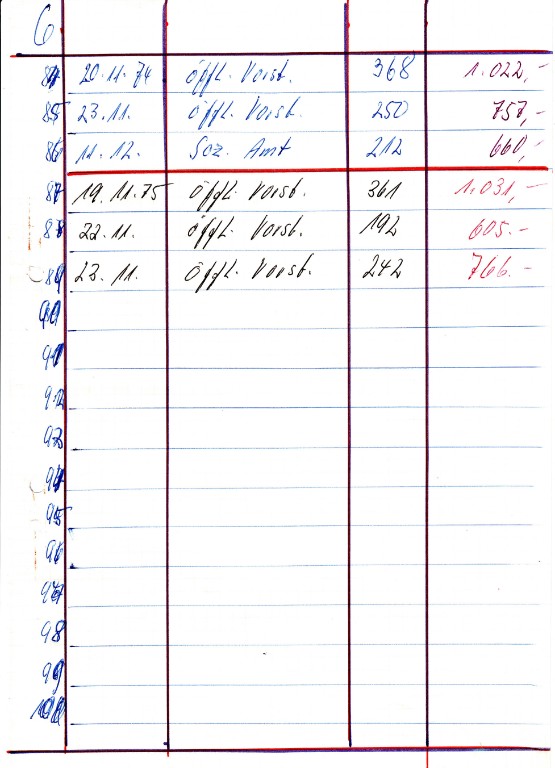 6
84 20.11.74 öffl. Vorst. 368 1.022,-
85 23.11. öffl. Vorst. 250 757,-
86 11.12. Soz. Amt 212 660,-
87 19.11.75 öffl. Vorst. 361 1.031,-
88 22.11. öffl. Vorst. 192 605.-
89 23.11. öffl. Vorst. 242 766.-
90
91
92
93
94
95
96
97
98
99
100